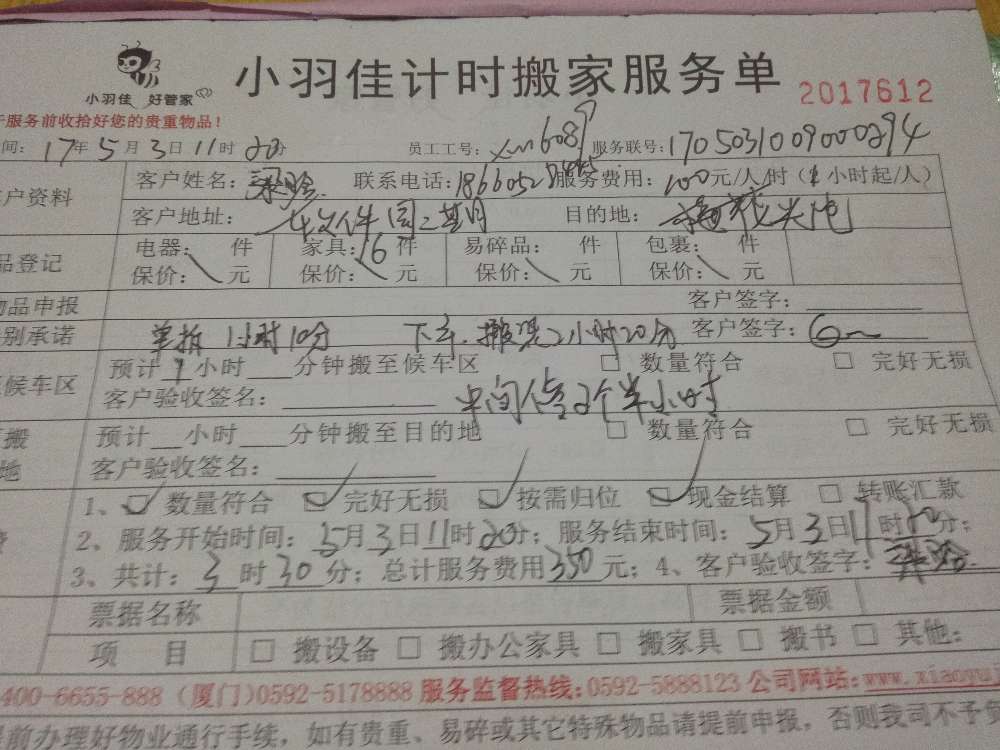 小羽佳计时搬家服务单
小羽佳 好管家
2017612
服务前收拾好您的贵重物品！
间：17年5月3日11时20分 员工工号：xm6089 服务联号：1705031009000294
户资料 客户姓名： 联系电话： 服务费用：100元/人/时（1小时起/人）
客户地址：软件园二期 目的地：
品登记 电器： 件 家具：16件 易碎品： 件 包裹： 件
保价： 元 保价： 元 保价： 元 保价： 元
物品申报 客户签字：
别承诺 单拍 1小时10分 下车 2小时20分 客户签字：
候车区 预计1小时 分钟搬至候车区 □ 数量符合 □ 完好无损
客户验收签名： 中间 2个半小时
搬 预计 小时 分钟搬至目的地 □ 数量符合 □ 完好无损
地 客户验收签名：
1、☑ 数量符合 ☑ 完好无损 ☑ 按需归位 ☑ 现金结算 □ 转账汇款
2、服务开始时间：5月3日11时20分；服务结束时间：5月3日17时20分；
3、共计：3时30分；总计服务费用350元；4、客户验收签字：
票据名称 票据金额
项 目 □ 搬设备 □ 搬办公家具 □ 搬家具 □ 搬书 □ 其他：
400-6655-888（厦门）0592-5178888 服务监督热线：0592-5888123 公司网站：www.xiaoyu
前办理好物业通行手续，如有贵重、易碎或其它特殊物品请提前申报，否则我司不予